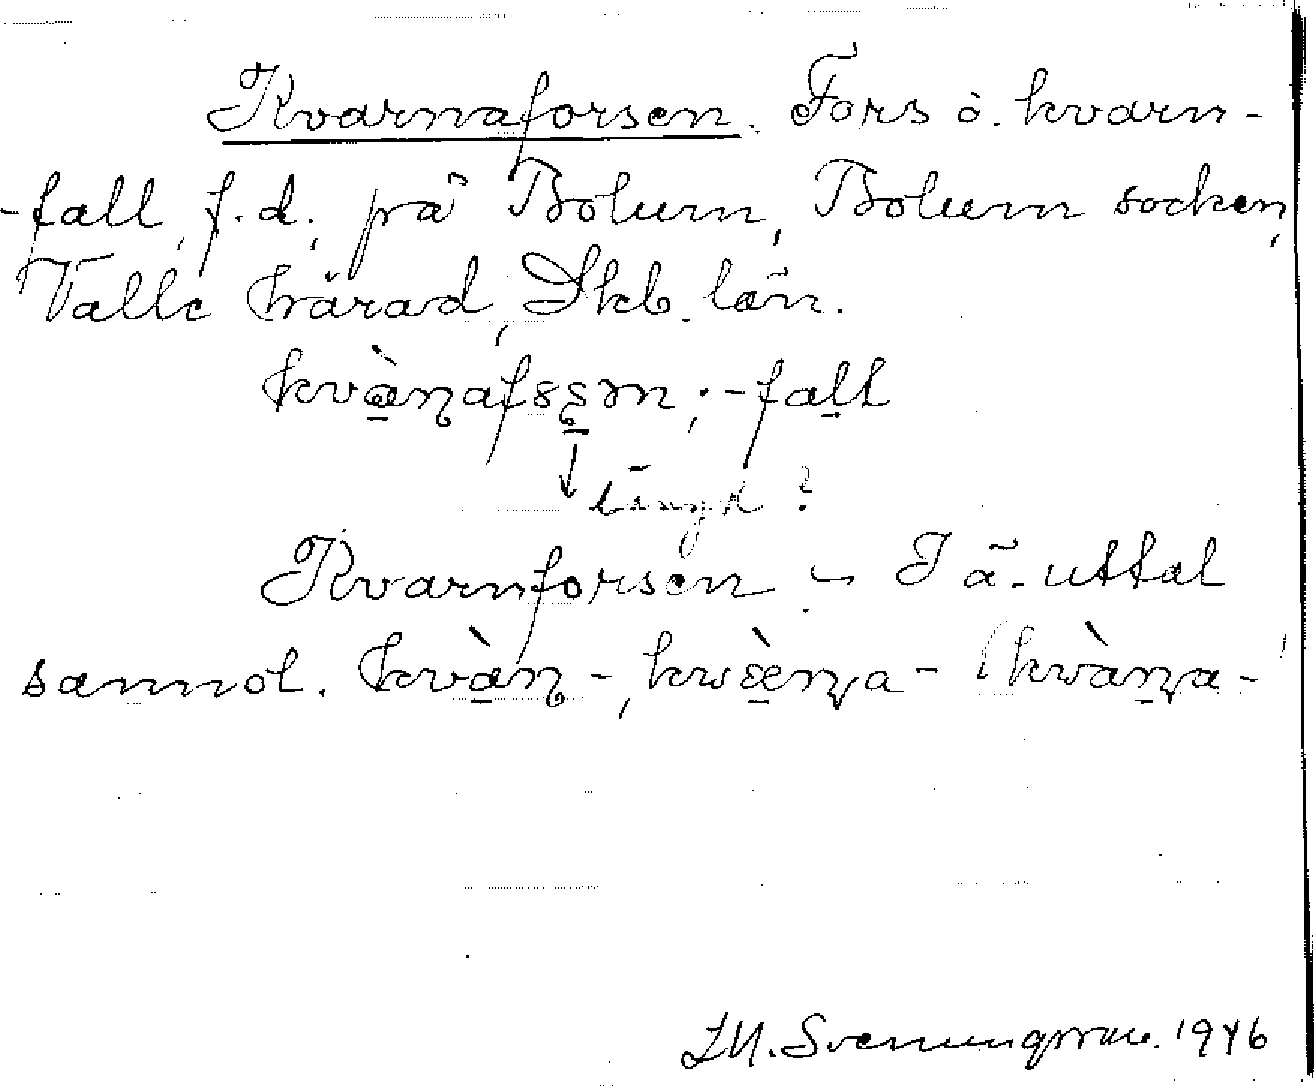 Kvarnaforsen. Fors o. kvarn-
-fall, f.d., på Bolum, Bolum socken,
Valle härad, Skb. län.
kvàɳafsʂən; -falt
↓ längd?
Kvarnforsen – I ä. uttal
sannol. kvàɳ-, kwæ̀ɳa- (kwàɳa-
Svenungsson. 1946